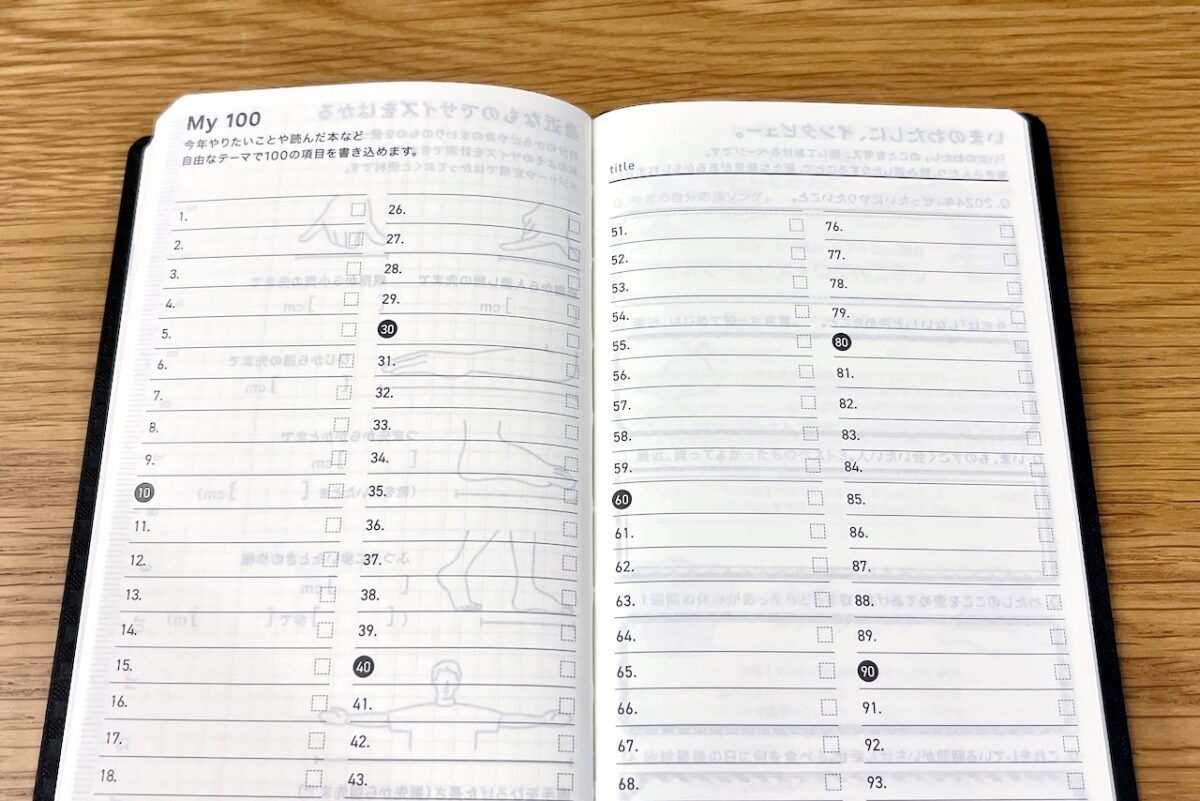 My 100
今年やりたいことや読んだ本など
自由なテーマで100の項目を書き込めます。
1.
2.
3.
4.
5.
6.
7.
8.
9.
10
11.
12.
13.
14.
15.
16.
17.
18.
26.
27.
28.
29.
30
31.
32.
33.
34.
35.
36.
37.
38.
39.
40
41.
42.
43.
title
51.
52.
53.
54.
55.
56.
57.
58.
59.
60
61.
62.
63.
64.
65.
66.
67.
68.
76.
77.
78.
79.
80
81.
82.
83.
84.
85.
86.
87.
88.
89.
90
91.
92.
93.